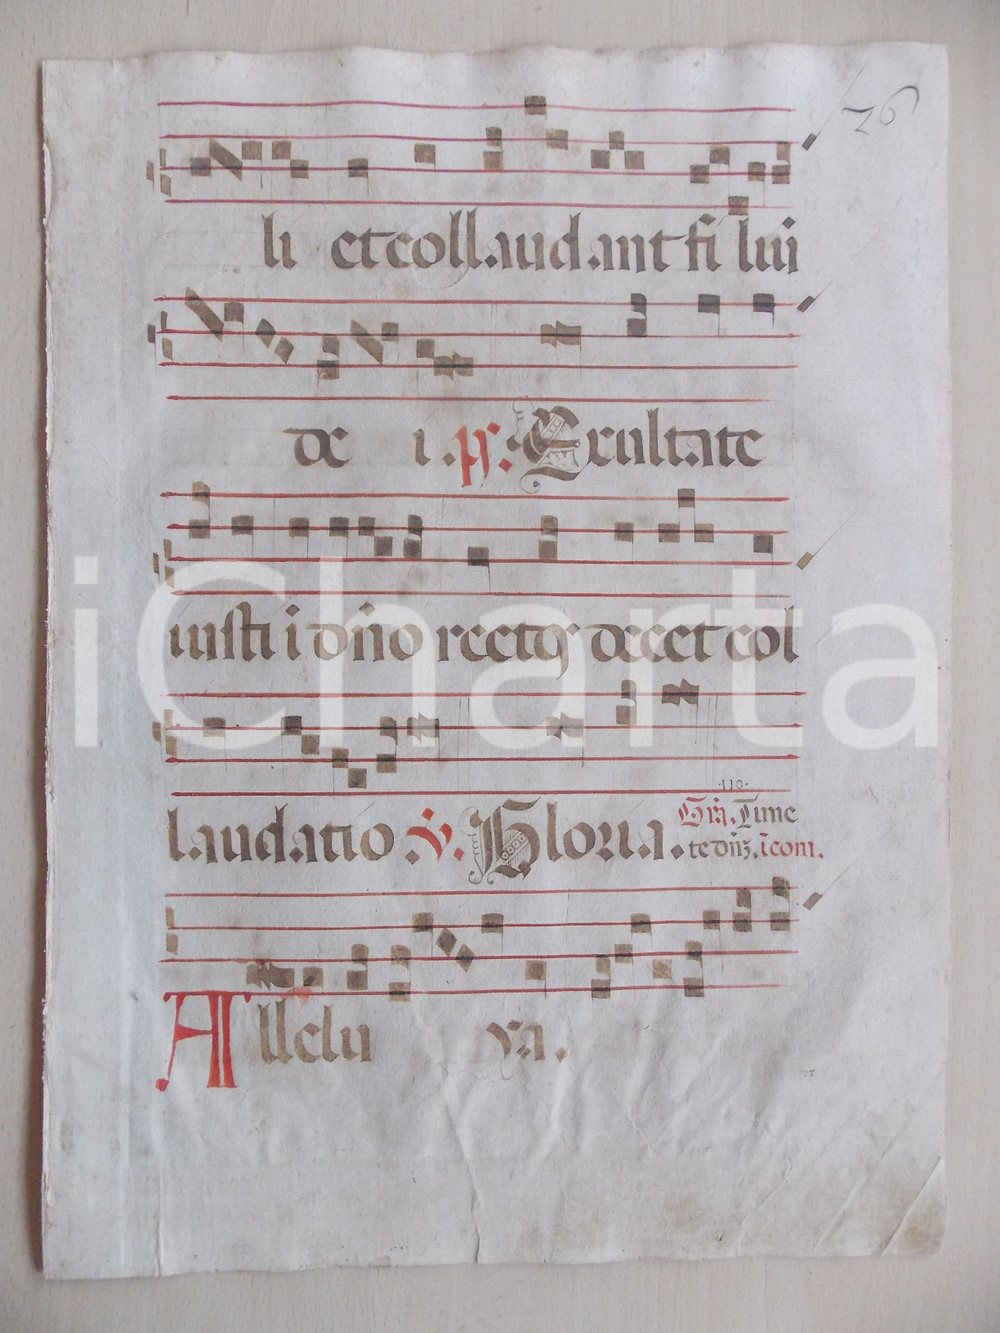 26
li et collaudant filiu
de i .ps. Exultate
iusti i dño rectos decet col
laudatio .v. Gloria. Gra. Time
.110.
te dñz. icom.
Alleluya.
iCharta